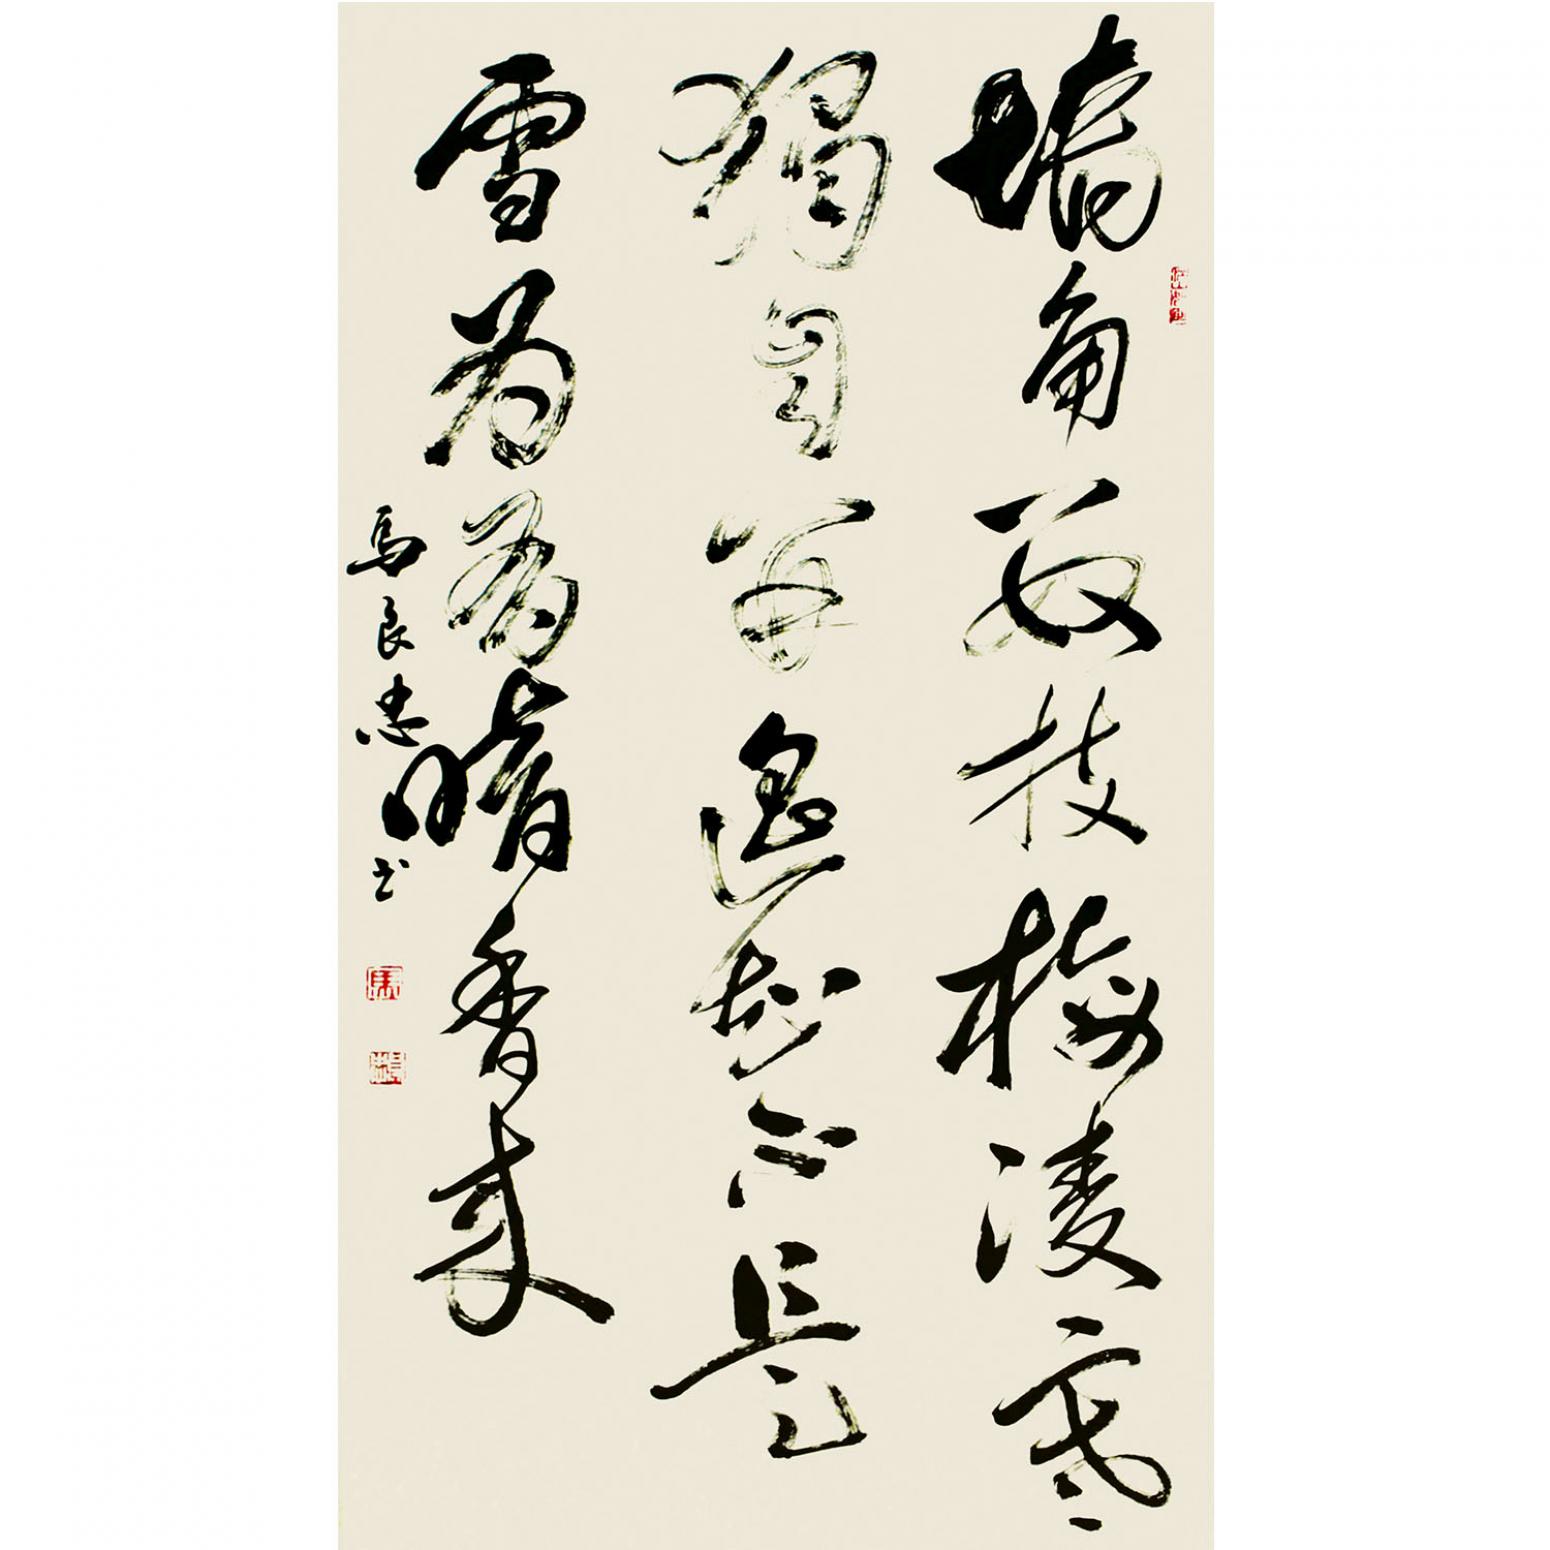 墙角数枝梅凌寒
獨自开遥知不是
雪为有暗香来
马良忠书